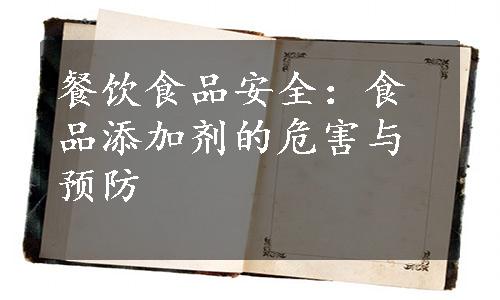 餐饮食品安全：食
品添加剂的危害与
预防